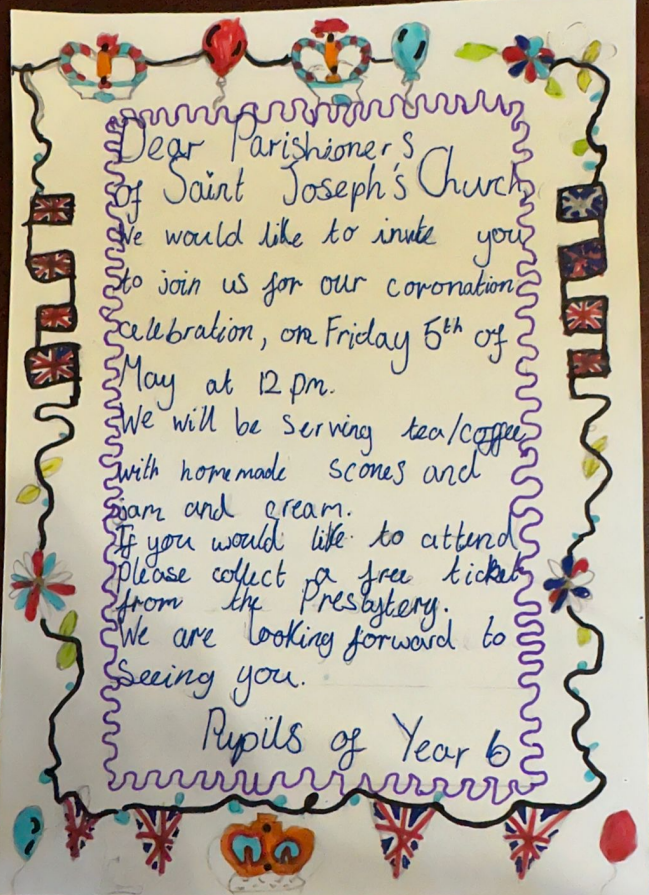 Dear Parishioner's
of Saint Joseph's Church,
We would like to invite you
to join us for our coronation
celebration, on Friday 5th of
May at 12 pm.
We will be serving tea/coffee
with homemade scones and
jam and cream.
If you would like to attend
please collect a free ticket
from the Presbytery.
We are looking forward to
seeing you.
Pupils of Year 6